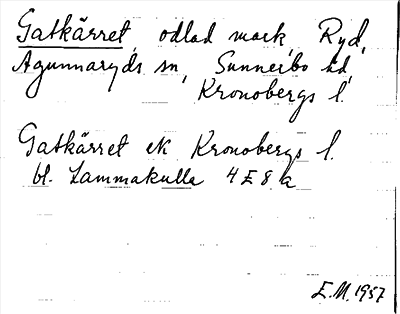 Gatkärret, odlad mark, Ryd,
Agunnaryds sn, Sunnerbo hd,
Kronobergs l.
Gatkärret ek Kronobergs l.
bl. Lammakulla 4E8a
E.M. 1957